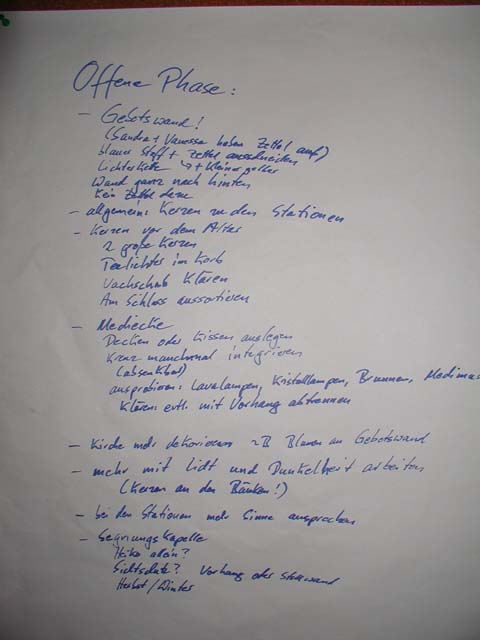 Offene Phase:
- Gebetswand!
(Sandra + Vanessa heben Zettel auf)
blauer Stoff + Zettel ausschneiden
Lichterkette ↳ + kleiner
Wand ganz nach hinten
kein Zettel dazu
- allgemein: Kerzen zu den Stationen
- Kerzen vor dem Altar
2 große Kerzen
Teelichter im Korb
Nachschub klären
Am Schluss aussortieren
- Mediecke
Decken oder Kissen auslegen
Kreuz manchmal integrieren
ausprobieren: Lavalampen, Kristallampen, Brunnen, Medimus
Klären: evtl. mit Vorhang abtrennen
- Kirche mehr dekorieren zB Blumen an Gebetswand
- mehr mit Licht und Dunkelheit arbeiten
(Kerzen an den Bänken!)
- bei den Stationen mehr Sinne ansprechen
- Segnungskapelle
Heiko allein?
Sichtschutz? Vorhang oder Stellwand
Herbst/Winter